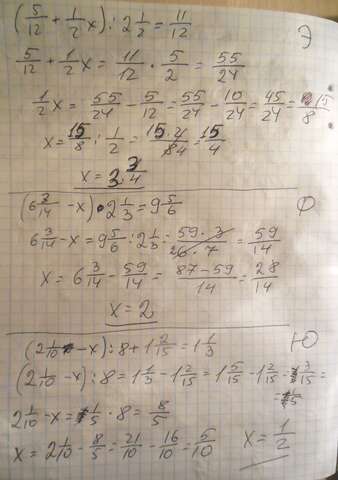 (5/12 + 1/2 x) : 2 1/2 = 11/12
Э
5/12 + 1/2 x = 11/12 · 5/2 = 55/24
1/2 x = 55/24 - 5/12 = 55/24 - 10/24 = 45/24 = 15/8
x = 15/8 : 1/2 = 15·2/84 = 15/4
x = 3 3/4
(6 3/14 - x) · 2 1/3 = 9 5/6
Ф
6 3/14 - x = 9 5/6 : 2 1/3 = 59·3/26·7 = 59/14
x = 6 3/14 - 59/14 = 87-59/14 = 28/14
x = 2
(2 1/10 - x) : 8 + 1 2/15 = 1 1/3
Ю
(2 1/10 - x) : 8 = 1 1/3 - 1 2/15 = 1 5/15 - 1 2/15 = 3/15 =
= 1/5
2 1/10 - x = 1/5 · 8 = 8/5
x = 2 1/10 - 8/5 = 21/10 - 16/10 = 5/10
x = 1/2